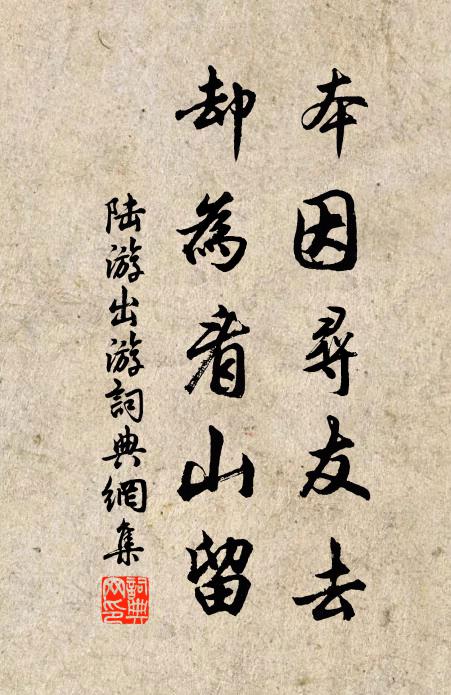 本因尋友去
却為看山留
陸游出游詞典網集
詞典網印